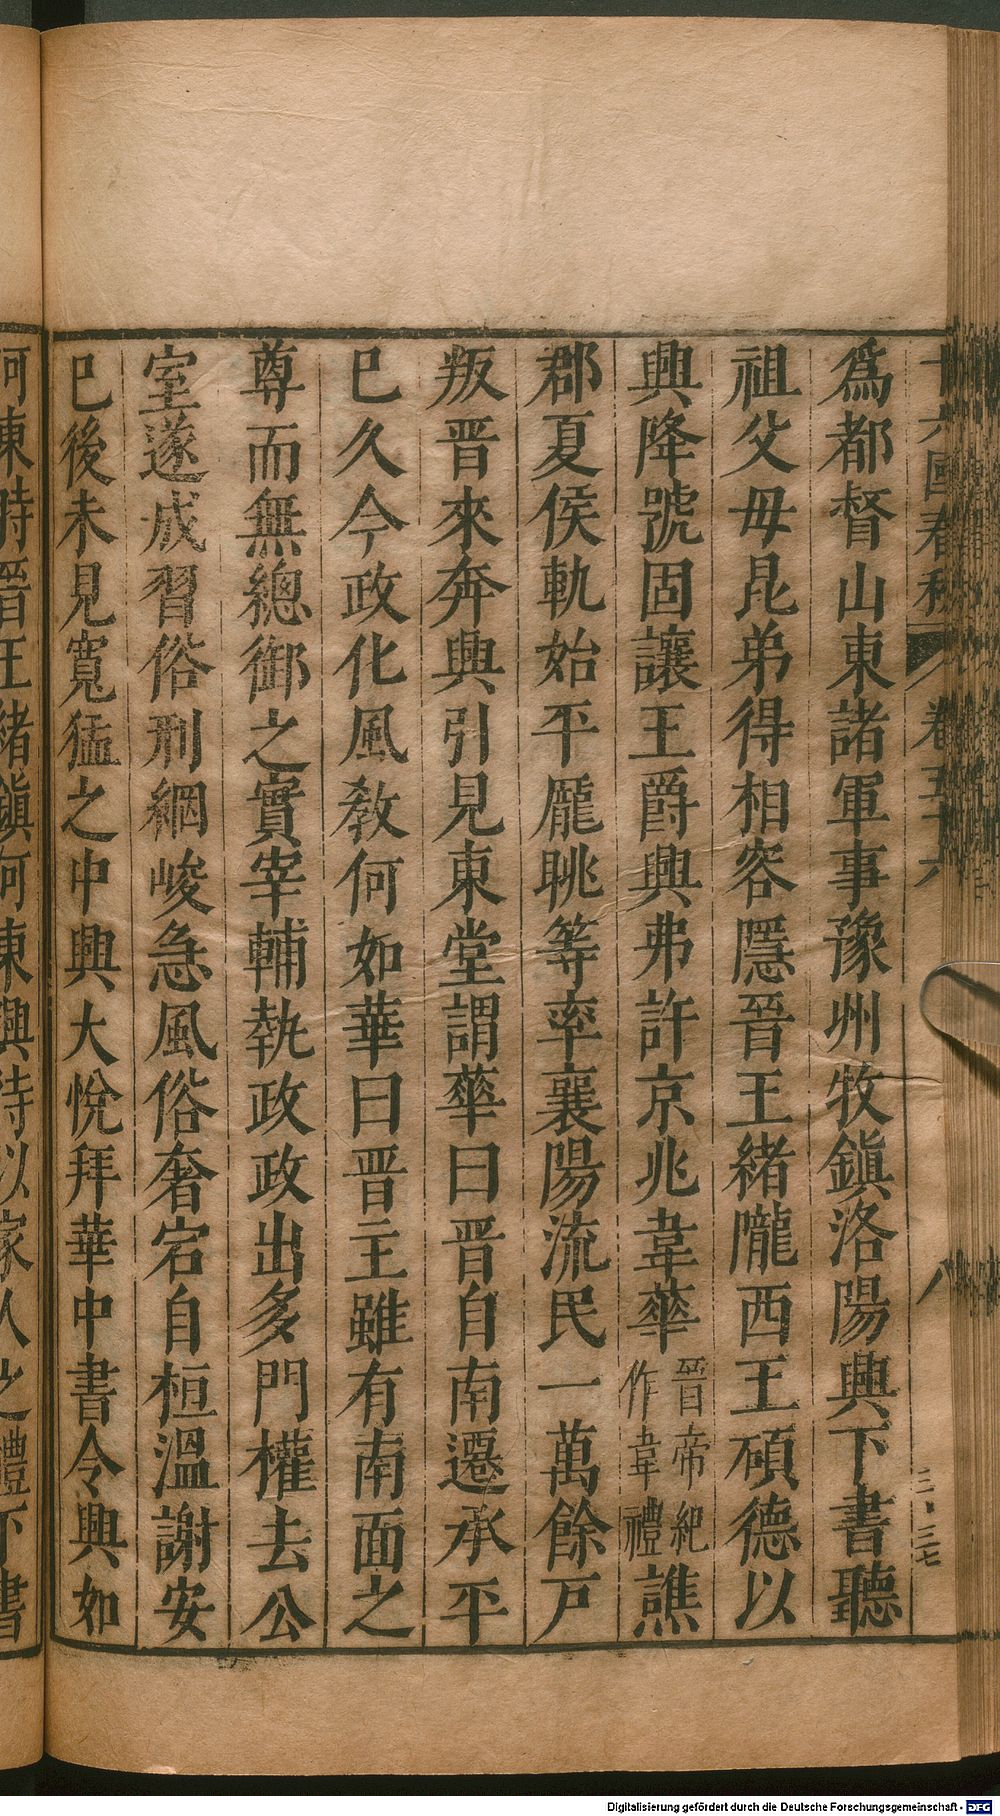 十六國春秋 卷五十六 八
為都督山東諸軍事豫州牧鎮洛陽興下書聽
祖父毋昆弟得相容隱晉王緒隴西王碩德以
興降號固讓王爵興弗許京兆韋華晉帝紀作韋禮譙
郡夏侯軌始平龎眺等率襄陽流民一萬餘戸
叛晉來奔興引見東堂謂華曰晋自南遷承平
巳久今政化風教何如華曰晋主雖有南面之
尊而無總御之實宰輔執政政出多門權去公
室遂成習俗刑網峻急風俗奢宕自桓溫謝安
巳後未見寬猛之中興大悅拜華中書令興如
河東時晉王緒鎮河東興待以家人之禮下書
Digitalisierung gefördert durch die Deutsche Forschungsgemeinschaft - DFG